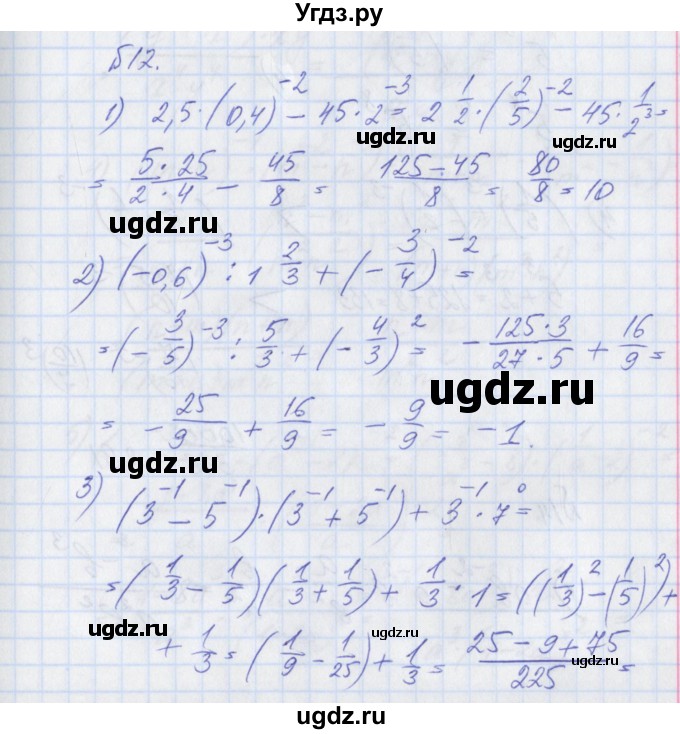 Угдз.ру
Б12.
1) 2,5·(0,4)⁻² − 45·2⁻³ = 2 1/2·(2/5)⁻² − 45·1/2³ =
= 5·25/2·4 − 45/8 = 125−45/8 = 80/8 = 10
uugdz.ru
2) (−0,6)⁻³ : 1 2/3 + (−3/4)⁻² =
= (−3/5)⁻³ : 5/3 + (−4/3)² = −125·3/27·5 + 16/9 =
uugdz.ru
= −25/9 + 16/9 = −9/9 = −1.
uugdz.ru
3) (3⁻¹ − 5⁻¹)·(3⁻¹ + 5⁻¹) + 3⁻¹·7⁰ =
= (1/3 − 1/5)(1/3 + 1/5) + 1/3·1 = ((1/3)² − (1/5)²) +
uugdz.ru uugdz.ru
+ 1/3 = (1/9 − 1/25) + 1/3 = 25−9+75/225 =
uugdz.ru
uugdz.ru
uugdz.ru